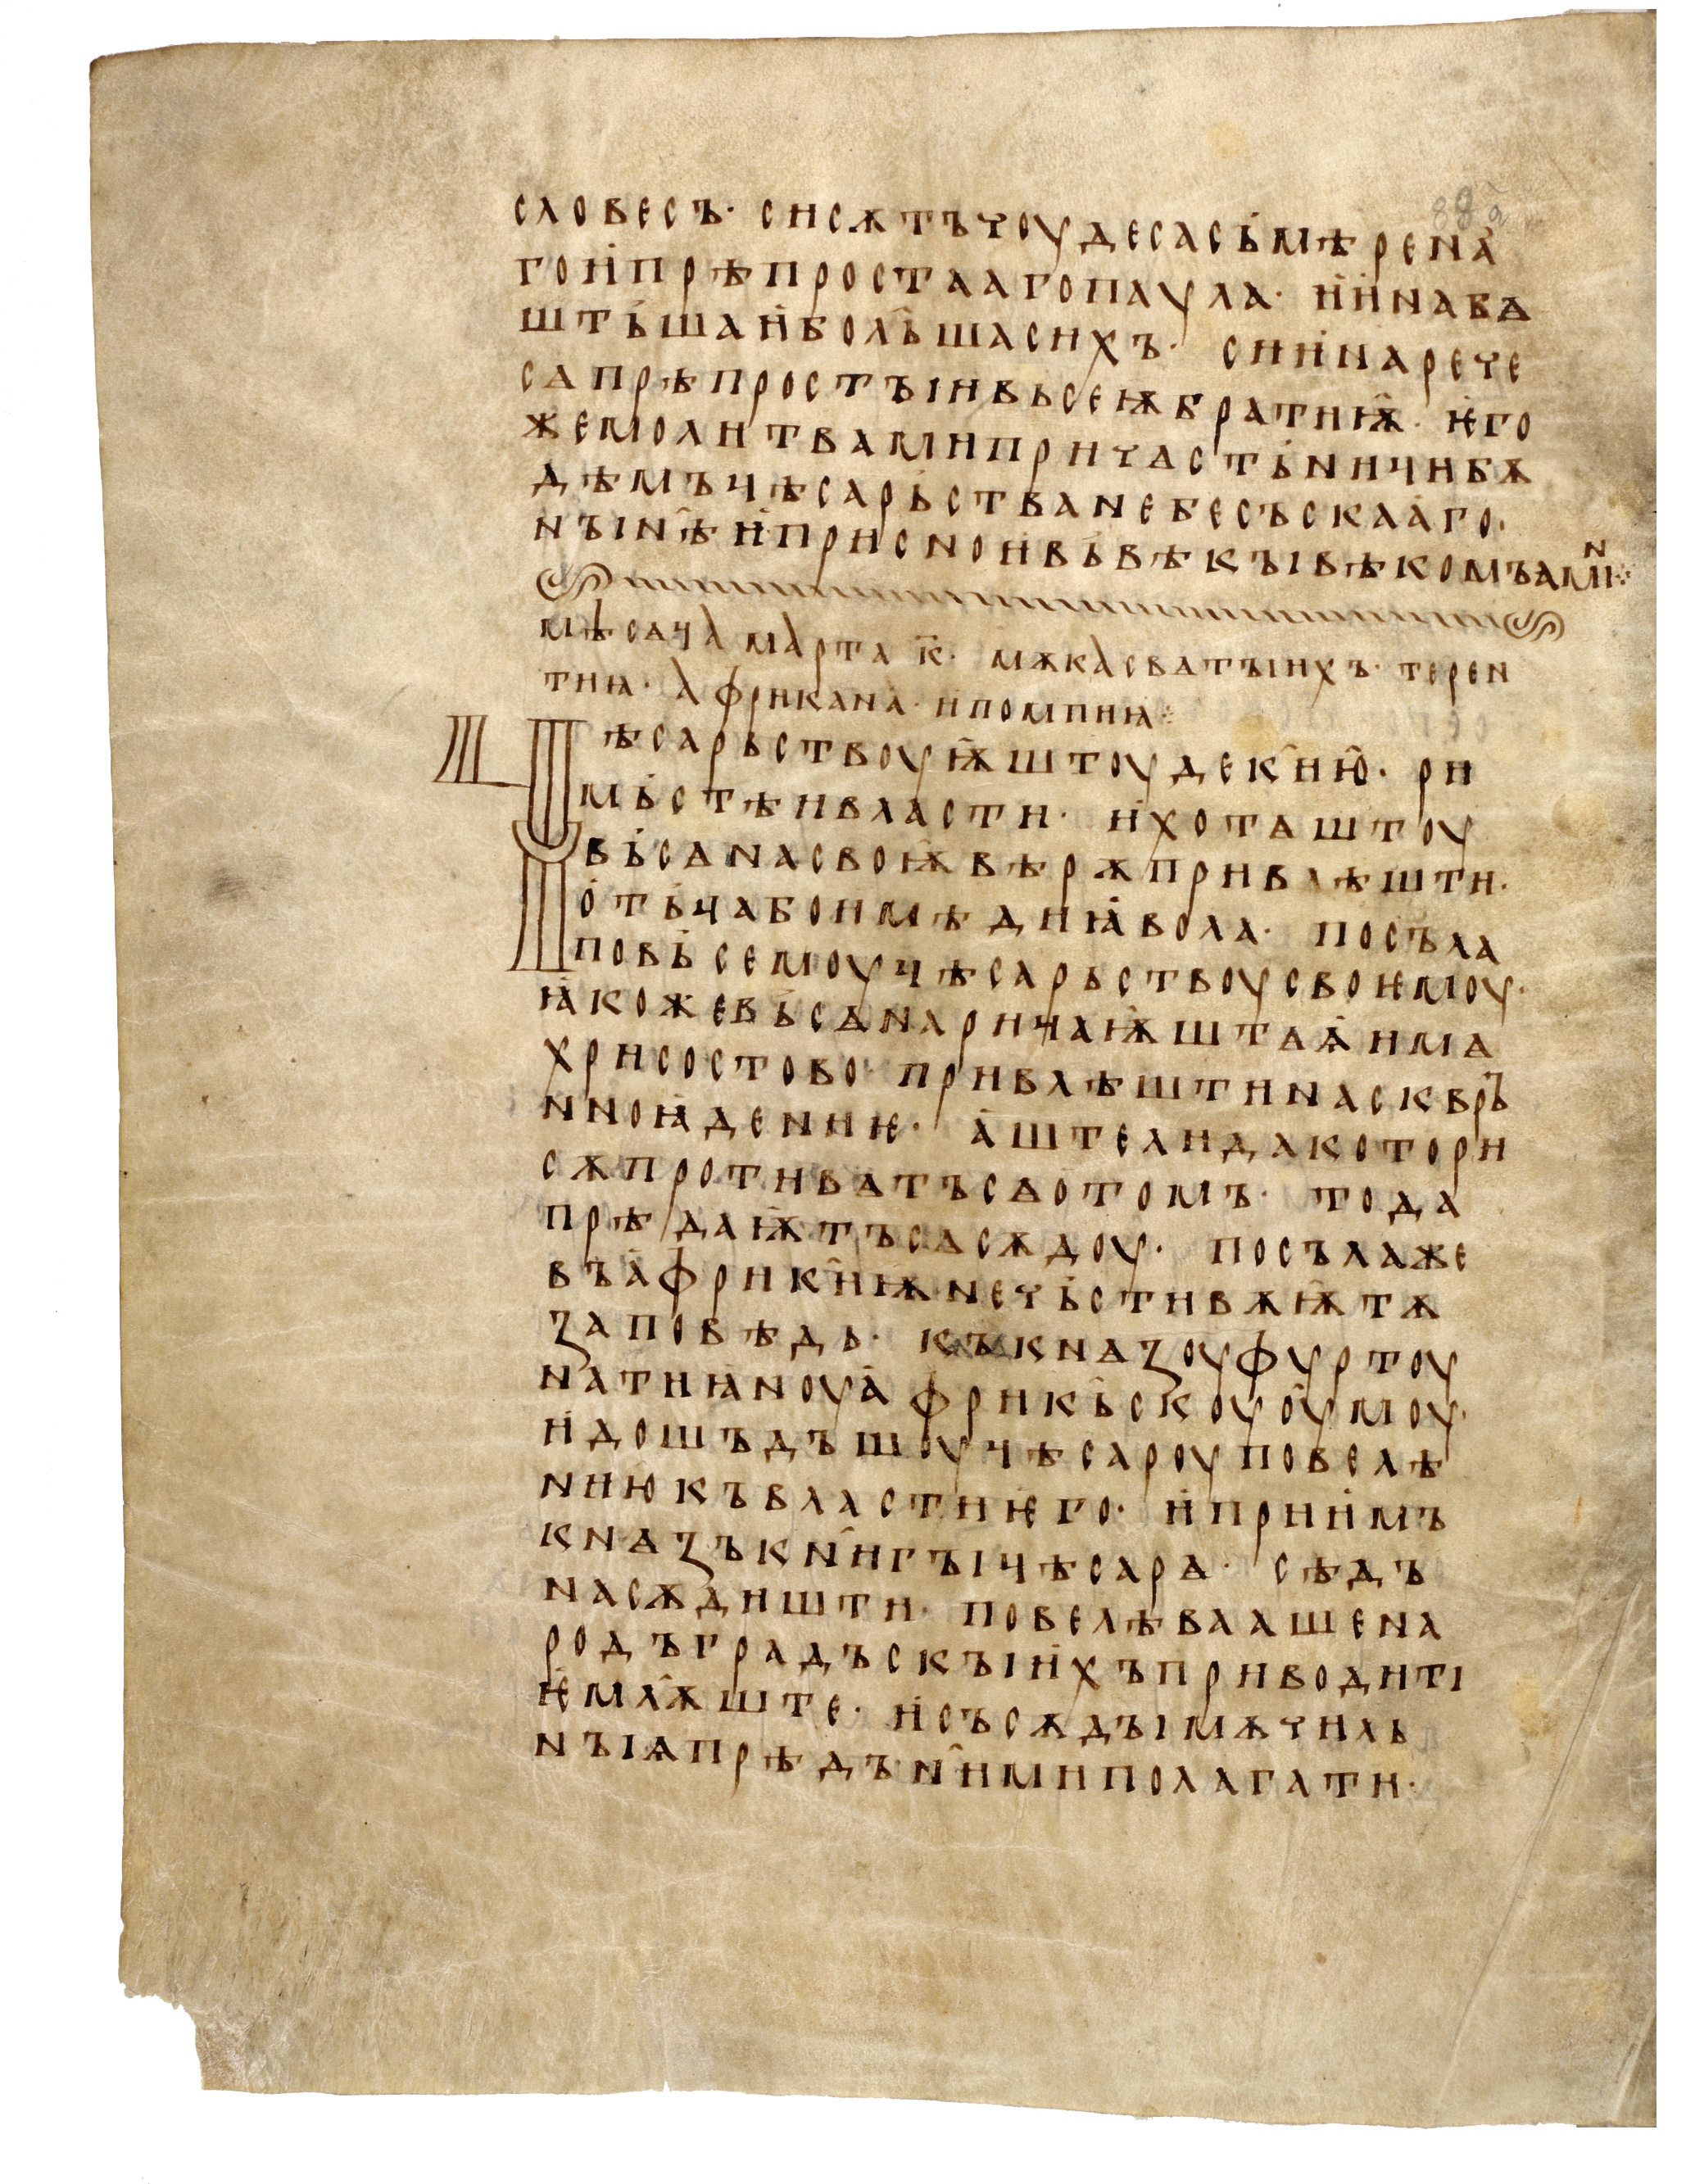 словесъ· си сѫтъ чоудеса съмѣрена
го и прѣпростааго паула· и инавѧ
штьша и больша сихъ· си и нарече
сѧ прѣпростъі и вьсеѭ братиѭ· ѥго
же молитвами причѧстьници бѫ
дѣмъ цѣсарьства небесьскааго·
нъінѣ и присно и въ вѣкъі вѣкомъ амин҃·
мѣсѧца марта к҃· мѫка свѧтъіихъ· терен
тиꙗ· африкана· и помпиꙗ
Цѣсарьствоуѭштоу декию· ри
мьстѣи власти· и хотѧштоу
вьсѧ на своѭ вѣрѫ привлѣшти·
отьца бо имѣ диꙗвола· посъла
по вьсемоу цѣсарьствоу своѥмоу·
ꙗкоже вьсѧ нарицаѭштаѧ имѧ
хрисостово· привлѣшти на скврь
нноꙗдениѥ· аште ли да котори
сѫпротивѧтъ сѧ о томь· то да
прѣдаѭтъ сѧ сѫдоу· посъла же
въ африкиѭ нечьстивѫѭ тѫ
заповѣдь· къ кнѧзоу фурту
натиꙗноу африкьскоуоумоу·
и дошъдъшоу цѣсароу повелѣ
нию къ власти ѥго· и приимъ
кнѧзъ книгъі цѣсарѧ· сѣдъ
на сѫдишти· повелѣвааше на
родъ градъскъіихъ приводити
ѥмлѭште· и съсѫдъі мѫчиль
нъіѩ прѣдъ ними полагати·